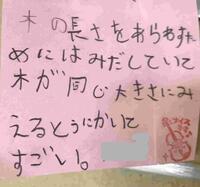 木の長さをあらわすた
めにはみだしていて
木が同じ大きさにみ
えるとうにかいて
すごい。